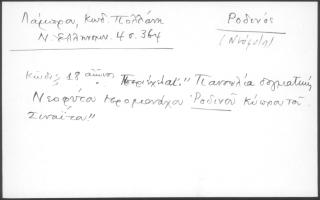 Λάμπρου, Κωδ. Πολλάνη
Ν. Ελληνομν. 4 σ. 364
Ροδινός
(Νεόφυτ)
Κώδιξ 18 αἰῶνος Περιέχει "Πανοπλία δογματικὴ
Νεοφύτου ἱερομονάχου Ῥοδινοῦ κύπρου τοῦ
Σιναΐτου"